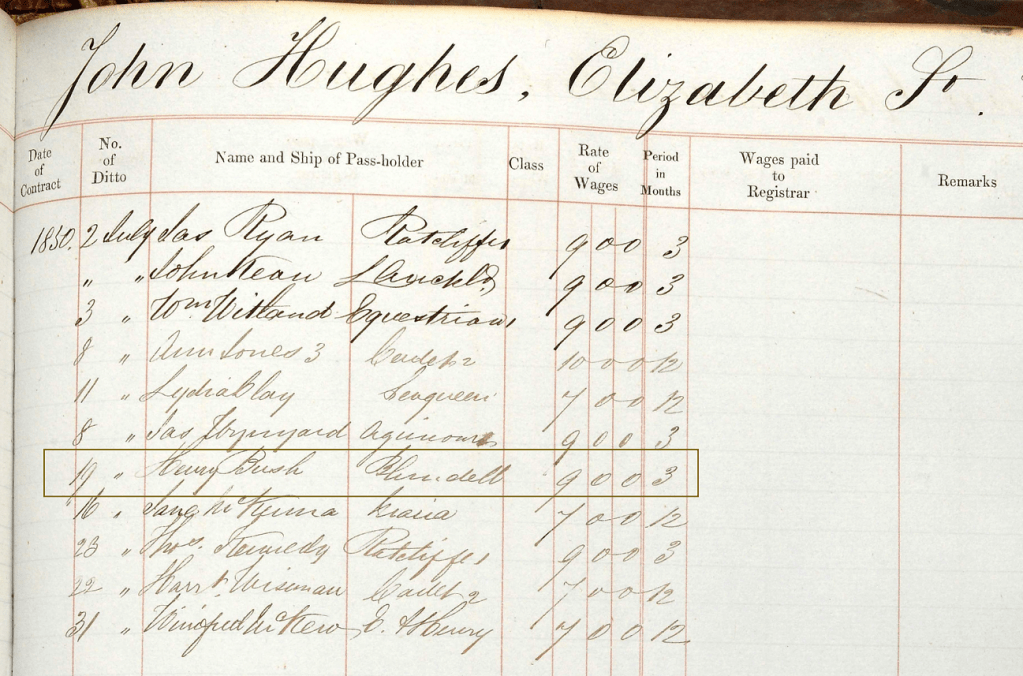 John Hughes, Elizabeth St.
Date of Contract No. of Ditto Name and Ship of Pass-holder Class Rate of Wages Period in Months Wages paid to Registrar Remarks
1850. 2 July Jas Ryan Ratcliffe 1 9 0 0 3
" " John Kean 9 0 0 3
3 " Wm Witland Equestrian 1 9 0 0 3
8 " Ann Jones 3 Cadet 2 10 0 0 12
11 " Lydia Clay Seaqueen 7 0 0 12
8 " Jas Wynyard 9 0 0 3
19 " Henry Bush Blundell 9 0 0 3
16 " Jane McKenna Maria 7 0 0 12
23 " Thos. Kennedy Ratcliffe 1 9 0 0 3
22 " Harrt. Wiseman Cadet 2 7 0 0 12
31 " Winifred McKew E. & Henry 7 0 0 12